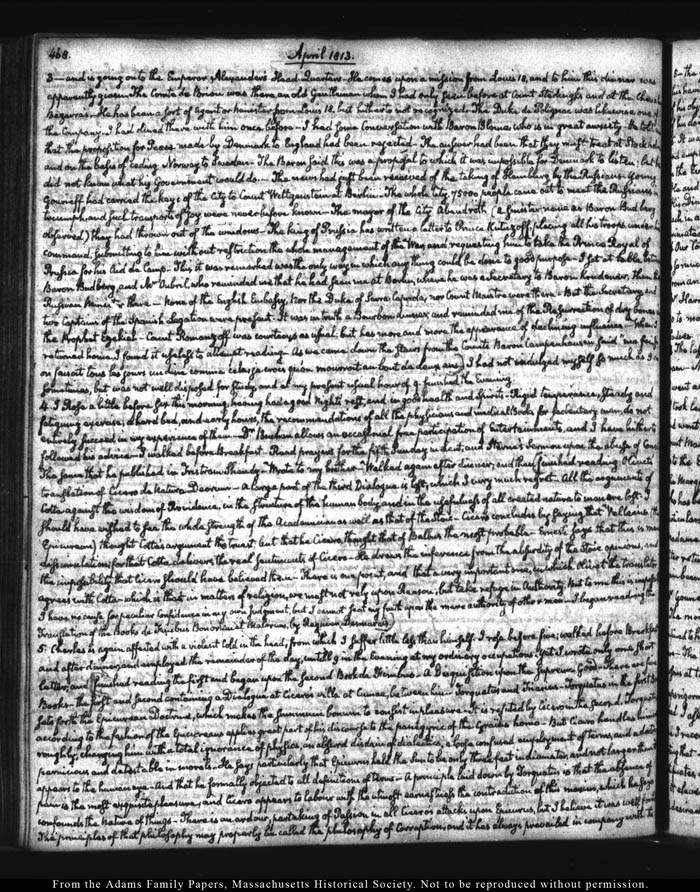 468.
April 1813.
3— and is going on to the Emperor Alexander's Head-Quarters— He comes upon a mission from Louis 18, and to him this dinner was
apparently given. The Comte de Brion was there, an old Gentleman whom I had only seen before at Count Stedingk's and at the
Bezerras— He has been a sort of agent or minister from Louis 18. but hitherto not recognized. The Duke de Polignac was likewise one of
the Company. I had dined there with him once before— I had some Conversation with Baron Blome, who is in great anxiety. He told
that the proposition for Peace made by Denmark to England had been rejected— The answer had been that they must treat at Stockholm
and on the basis of ceding Norway to Sweden— The Baron said this was a proposal to which it was impossible for Denmark to listen; but he
did not know what his Government would do— The news had just been received of the taking of Hamburg by the Russians. Young
had carried the keys of the City to Count Wittgenstein at Berlin— The whole City, 75000 people came out to meet the Russians in
triumph, and such transports of joy were never before known— The mayor of the City Abendroth (a sinister name as Baron Budberg
observed) they had thrown out of the windows— The king of Prussia has written a letter to Prince Kutuzoff, placing all his troops under his
command, submitting to him without restriction the whole management of the War, and requesting him to take the Prince Royal of
Prussia for his Aid de Camp— This it was remarked was the only way in which any thing could be done to good purpose— I sat at table between
Baron Budberg and Mr Oubril, who reminded me that he had seen me at Berlin, where he was a Secretary to Baron Krudener, then the
Russian Minister there— None of the English Embassy, nor the Duke of Serra Capriola, nor Count Maistre were there— But the Secretary and
two Captains of the Spanish Legation were present. It was in truth a Bourbon dinner, and reminded me of the Resurrection of dry bones in
the Prophet Ezekiel— Count Romanzoff was courteous as usual but has more and more the appearance of declining influence— When I
returned home I found it useless to attempt reading. As we came down the stairs from the Count's Baron Campenhausen said "ma foi, si
on faisoit tous les jours un diner comme cela, je crois qu'on mourroit au bout de deux ans." I had not indulged myself so much as I
sometimes, but was not well disposed for Study, and at my present usual hour of 9. finished the Evening.
4. I rose a little before five this morning, having had a good night's rest, and in good health and Spirits— Rigid temperance, Steady and
fatiguing exercise, a hard bed, and early hours, the recommendations of all the physicians and medical Books for sedentary men, do not
entirely succeed in my experience of them— Dr Buchan allows an occasional free participation of entertainments, and I have hitherto
followed his advice— I walked before Breakfast— Read prayers for the fifth Sunday in Lent, and Sterne's Sermon upon the abuses of Conscience
The same that he published in Tristram Shandy— Wrote to my brother— Walked again after dinner, and then finished reading Olivet's
translation of Cicero de Natura Deorum— A large part of the third Dialogue is lost, which I very much regret. All the arguments of
Cotta against the wisdom of Providence, in the structure of the human body, and in the usefulness of all created nature to man are lost. I
should have wished to see the whole strength of the Academician as well as that of the Stoic. Cicero concludes by saying that Velleius (the
Epicurean) thought Cotta's argument the truest, but that he Cicero thought that of Balbus the most probable— Olivet says that this is mere
dissimulation, for that Cotta delivers the real sentiments of Cicero— He draws the inference from the absurdity of the Stoic opinions, and
the impossibility that Cicero should have believed them— There is one point, and that a very important one, in which Olivet the translator
agrees with Cotta— which is that in matters of religion, we must not rely upon Reason, but take refuge in Authority. Not to me this is impossible
I have no cause for peculiar confidence in my own judgment, but I cannot rest my faith upon the mere authority of other men. I began reading the
Translation of the Books de Finibus Bonorum et Malorum, by Regnier Desmarais.
5. Charles is again affected with a violent cold in the head, from which I suffer little less than himself. I rose before five; walked before Breakfast
and after dinner, and employed the remainder of the day, untill 9 in the Evening at my ordinary occupations. Yet I wrote only one short
letter, and finished reading the first and began upon the Second Book de Finibus— A disquisition upon the Supreme Good. There are five
Books— the first and second containing a Dialogue at Cicero's villa at Cumae, between him— Torquatus and Triarius— Torquatus in the first Book
sets forth the Epicurean Doctrine, which makes the summum bonum to consist in pleasure— It is refuted by Cicero in the second. Torquatus
according to the fashion of the Epicureans applies great part of his discourse to the panegyric of the homo— But Cicero handles him
roughly, charging him with a total ignorance of physics, an absurd disdain of dialectics, a loose confused employment of terms, and a doctrine
pernicious and detestable in morals— He says particularly that Epicurus held the Sun to be only three feet in diameter, and not larger than it
appears to the human eye— And that he formally objected to all definitions of terms— A principle laid down by Torquatus is that the absence of
pain is the most exquisite pleasure; and Cicero appears to labour with the utmost earnestness the contradiction of this maxim, which he says
confounds the nature of things— There is an ardour, partaking of Passion in all Cicero's attack upon Epicurus, but I believe it was well founded
The principles of that philosophy may properly be called the philosophy of Corruption, and it has always prevailed in company with the
From the Adams Family Papers, Massachusetts Historical Society. Not to be reproduced without permission.